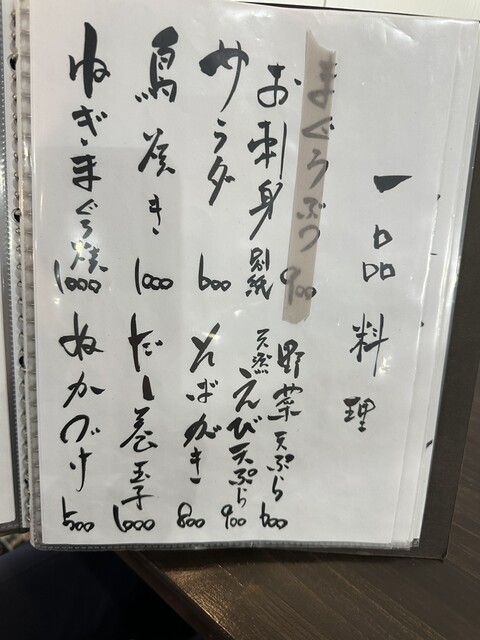 一品料理
まぐろぶつ 900
お刺身 別紙
サラダ 600
鳥焼き 1000
ねぎまぐろ焼 1000
野菜天ぷら 600
天然えび天ぷら 900
そばがき 800
だし巻玉子 1000
ぬかづけ 500